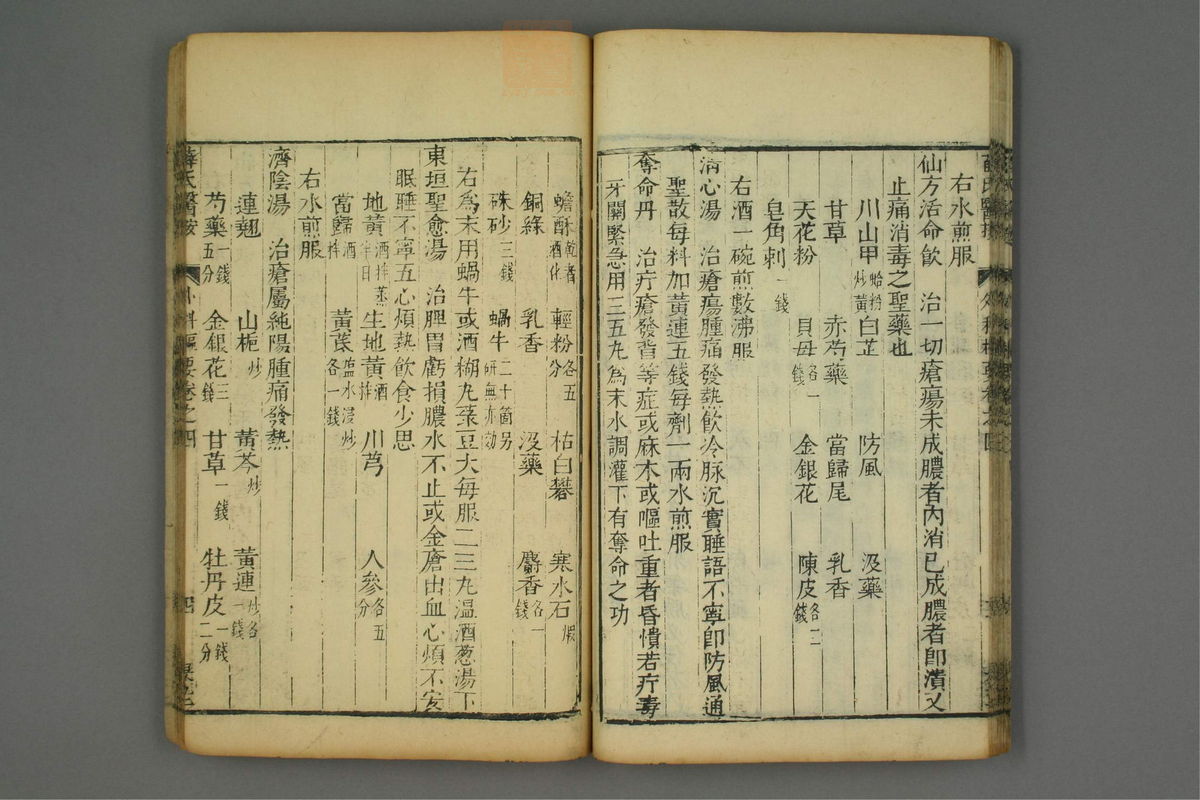 右水煎服
仙方活命飲　治一切瘡瘍未成膿者內消已成膿者即潰又
止痛消毒之聖藥也
川山甲蛤粉炒黃　白芷　防風　沒藥
甘草　赤芍藥　當歸尾　乳香
天花粉　貝母各一錢　金銀花　陳皮各三錢
皂角刺一錢
右酒一碗煎數沸服
清心湯　治瘡瘍腫痛發熱飲冷脉沉實睡語不寧卽防風通
聖散每料加黃連五錢每劑一兩水煎服
奪命丹　治疔瘡發背等症或麻木或嘔吐重者昏憒若疔毒
牙關緊急用三五丸爲末水調灌下有奪命之功
蟾酥乾者酒化　輕粉各五分　枯白礬　寒水石煆
銅綠　乳香　沒藥　麝香各一錢
硃砂三錢　蝸牛二十箇另研無亦効
右爲末用蝸牛或酒糊丸菉豆大每服二三丸溫酒葱湯下
東垣聖愈湯　治脾胃虧損膿水不止或金瘡出血心煩不安
眠睡不寧五心煩熱飲食少思
地黃酒拌蒸半日　生地黃酒拌　川芎　人參各五分
當歸酒拌　黃茋鹽水浸炒各一錢
右水煎服
濟陰湯　治瘡屬純陽腫痛發熱
連翹　山梔炒　黃芩炒　黃連炒各一錢
芍藥一錢五分　金銀花三錢　甘草一錢　牡丹皮一錢二分
薛氏醫按　外科樞要卷之四　四